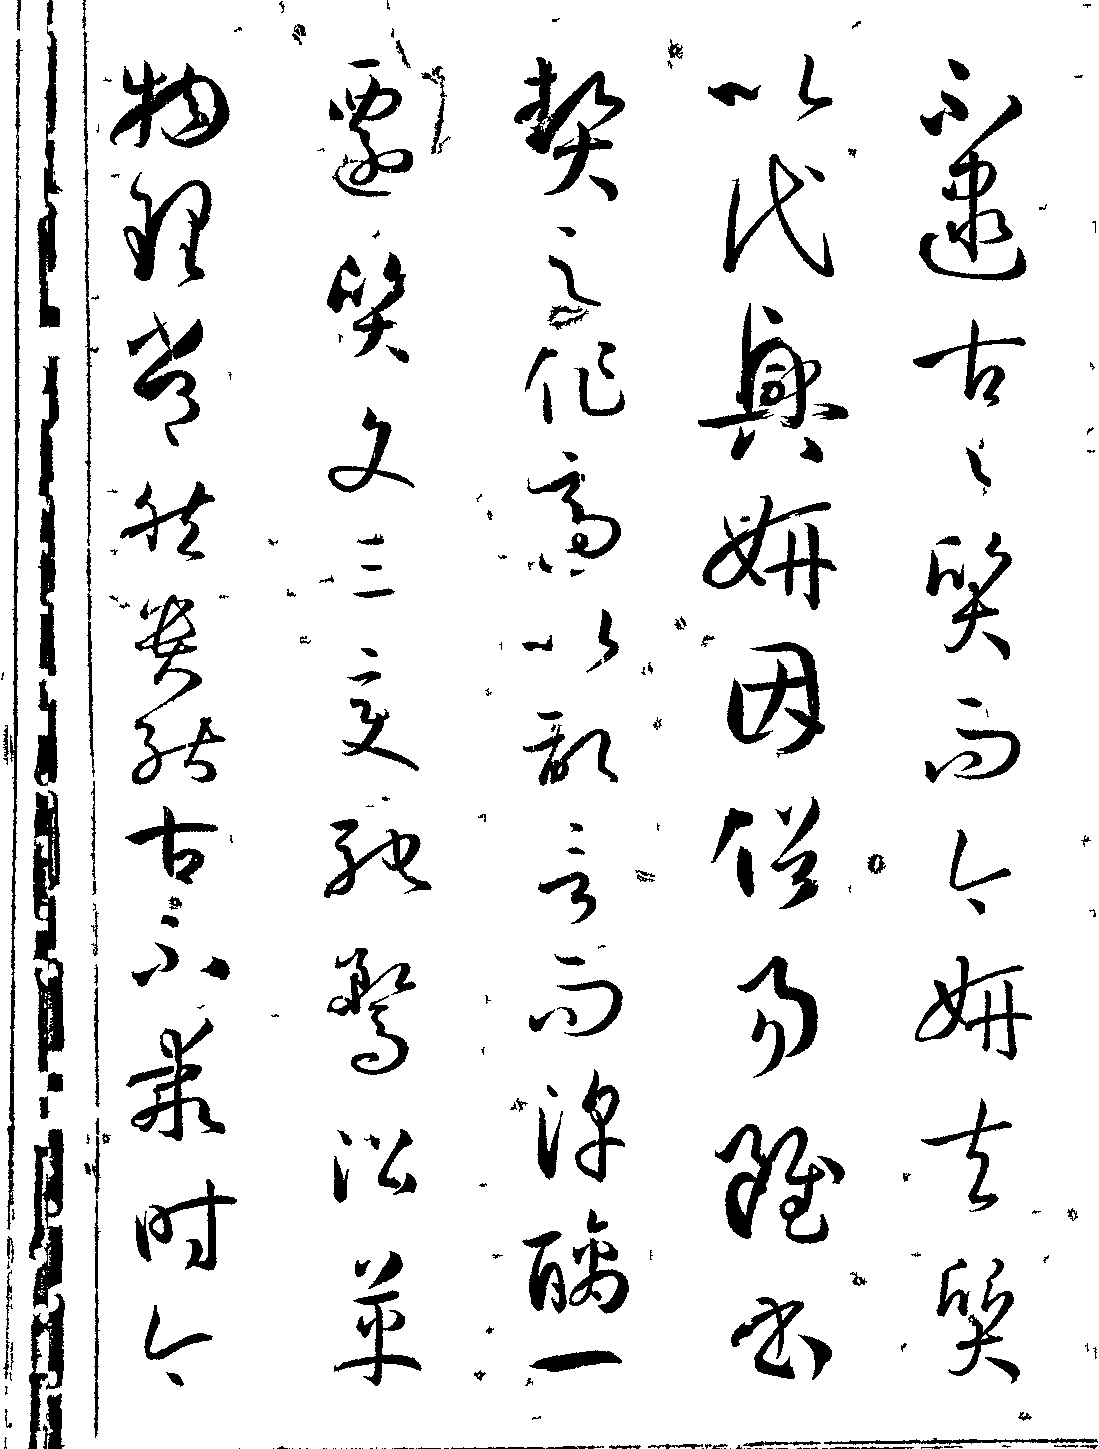 不逮古古質而今妍夫質
以代興妍因俗易雖書
契之作適以記言而淳醨一
遷質文三變馳騖沿革
物理常然貴能古不乖時今